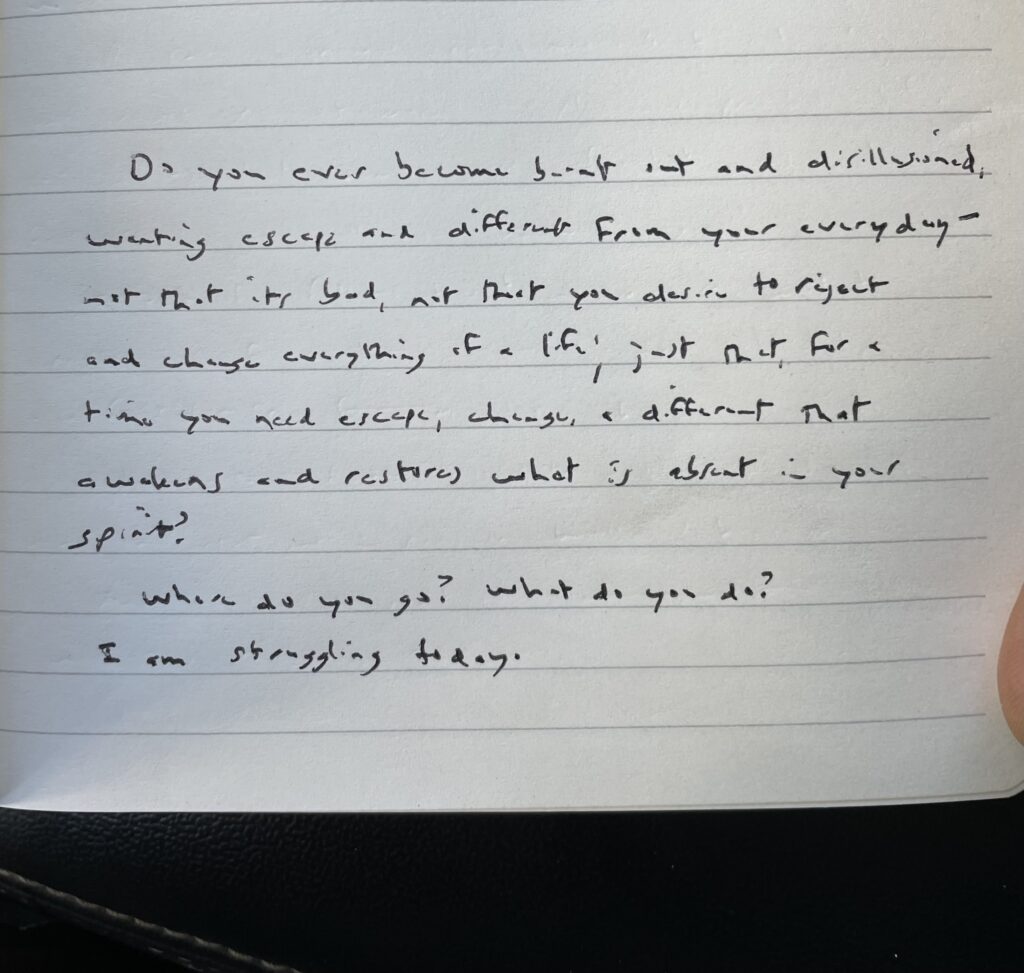 Do you ever become burnt out and disillusioned,
wanting escape and different from your everyday -
not that its bad, not that you desire to reject
and change everything of a life; just that, for a
time you need escape, change, a different that
awakens and restores what is absent in your
spirit?
Where do you go? What do you do?
I am struggling today.